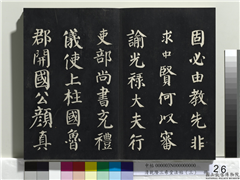 固必由教先非
求中賢何以審
諭光祿大夫行
吏部尚書充禮
儀使上柱國魯
郡開國公顏真
26